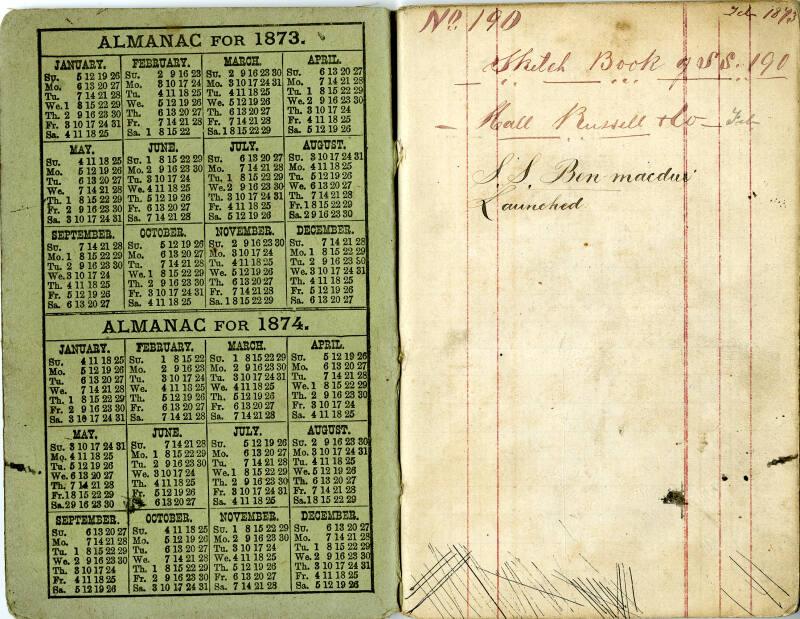 ALMANAC FOR 1873.
JANUARY.
Su. 5 12 19 26
Mo. 6 13 20 27
Tu. 7 14 21 28
We. 1 8 15 22 29
Th. 2 9 16 23 30
Fr. 3 10 17 24 31
Sa. 4 11 18 25
FEBRUARY.
Su. 2 9 16 23
Mo. 3 10 17 24
Tu. 4 11 18 25
We. 5 12 19 26
Th. 6 13 20 27
Fr. 7 14 21 28
Sa. 1 8 15 22
MARCH.
Su. 2 9 16 23 30
Mo. 3 10 17 24 31
Tu. 4 11 18 25
We. 5 12 19 26
Th. 6 13 20 27
Fr. 7 14 21 28
Sa. 1 8 15 22 29
APRIL.
Su. 6 13 20 27
Mo. 7 14 21 28
Tu. 1 8 15 22 29
We. 2 9 16 23 30
Th. 3 10 17 24
Fr. 4 11 18 25
Sa. 5 12 19 26
MAY.
Su. 4 11 18 25
Mo. 5 12 19 26
Tu. 6 13 20 27
We. 7 14 21 28
Th. 1 8 15 22 29
Fr. 2 9 16 23 30
Sa. 3 10 17 24 31
JUNE.
Su. 1 8 15 22 29
Mo. 2 9 16 23 30
Tu. 3 10 17 24
We. 4 11 18 25
Th. 5 12 19 26
Fr. 6 13 20 27
Sa. 7 14 21 28
JULY.
Su. 6 13 20 27
Mo. 7 14 21 28
Tu. 1 8 15 22 29
We. 2 9 16 23 30
Th. 3 10 17 24 31
Fr. 4 11 18 25
Sa. 5 12 19 26
AUGUST.
Su. 3 10 17 24 31
Mo. 4 11 18 25
Tu. 5 12 19 26
We. 6 13 20 27
Th. 7 14 21 28
Fr. 1 8 15 22 29
Sa. 2 9 16 23 30
SEPTEMBER.
Su. 7 14 21 28
Mo. 1 8 15 22 29
Tu. 2 9 16 23 30
We. 3 10 17 24
Th. 4 11 18 25
Fr. 5 12 19 26
Sa. 6 13 20 27
OCTOBER.
Su. 5 12 19 26
Mo. 6 13 20 27
Tu. 7 14 21 28
We. 1 8 15 22 29
Th. 2 9 16 23 30
Fr. 3 10 17 24 31
Sa. 4 11 18 25
NOVEMBER.
Su. 2 9 16 23 30
Mo. 3 10 17 24
Tu. 4 11 18 25
We. 5 12 19 26
Th. 6 13 20 27
Fr. 7 14 21 28
Sa. 1 8 15 22 29
DECEMBER.
Su. 7 14 21 28
Mo. 1 8 15 22 29
Tu. 2 9 16 23 30
We. 3 10 17 24 31
Th. 4 11 18 25
Fr. 5 12 19 26
Sa. 6 13 20 27
ALMANAC FOR 1874.
JANUARY.
Su. 4 11 18 25
Mo. 5 12 19 26
Tu. 6 13 20 27
We. 7 14 21 28
Th. 1 8 15 22 29
Fr. 2 9 16 23 30
Sa. 3 10 17 24 31
FEBRUARY.
Su. 1 8 15 22
Mo. 2 9 16 23
Tu. 3 10 17 24
We. 4 11 18 25
Th. 5 12 19 26
Fr. 6 13 20 27
Sa. 7 14 21 28
MARCH.
Su. 1 8 15 22 29
Mo. 2 9 16 23 30
Tu. 3 10 17 24 31
We. 4 11 18 25
Th. 5 12 19 26
Fr. 6 13 20 27
Sa. 7 14 21 28
APRIL.
Su. 5 12 19 26
Mo. 6 13 20 27
Tu. 7 14 21 28
We. 1 8 15 22 29
Th. 2 9 16 23 30
Fr. 3 10 17 24
Sa. 4 11 18 25
MAY.
Su. 3 10 17 24 31
Mo. 4 11 18 25
Tu. 5 12 19 26
We. 6 13 20 27
Th. 7 14 21 28
Fr. 1 8 15 22 29
Sa. 2 9 16 23 30
JUNE.
Su. 7 14 21 28
Mo. 1 8 15 22 29
Tu. 2 9 16 23 30
We. 3 10 17 24
Th. 4 11 18 25
Fr. 5 12 19 26
Sa. 6 13 20 27
JULY.
Su. 5 12 19 26
Mo. 6 13 20 27
Tu. 7 14 21 28
We. 1 8 15 22 29
Th. 2 9 16 23 30
Fr. 3 10 17 24 31
Sa. 4 11 18 25
AUGUST.
Su. 2 9 16 23 30
Mo. 3 10 17 24 31
Tu. 4 11 18 25
We. 5 12 19 26
Th. 6 13 20 27
Fr. 7 14 21 28
Sa. 1 8 15 22 29
SEPTEMBER.
Su. 6 13 20 27
Mo. 7 14 21 28
Tu. 1 8 15 22 29
We. 2 9 16 23 30
Th. 3 10 17 24
Fr. 4 11 18 25
Sa. 5 12 19 26
OCTOBER.
Su. 4 11 18 25
Mo. 5 12 19 26
Tu. 6 13 20 27
We. 7 14 21 28
Th. 1 8 15 22 29
Fr. 2 9 16 23 30
Sa. 3 10 17 24 31
NOVEMBER.
Su. 1 8 15 22 29
Mo. 2 9 16 23 30
Tu. 3 10 17 24
We. 4 11 18 25
Th. 5 12 19 26
Fr. 6 13 20 27
Sa. 7 14 21 28
DECEMBER.
Su. 6 13 20 27
Mo. 7 14 21 28
Tu. 1 8 15 22 29
We. 2 9 16 23 30
Th. 3 10 17 24 31
Fr. 4 11 18 25
Sa. 5 12 19 26
No. 190 Feb 1873
Sketch Book of S.S. 190
Hall Russell & Co Feb
S.S. Ben macdui
Launched